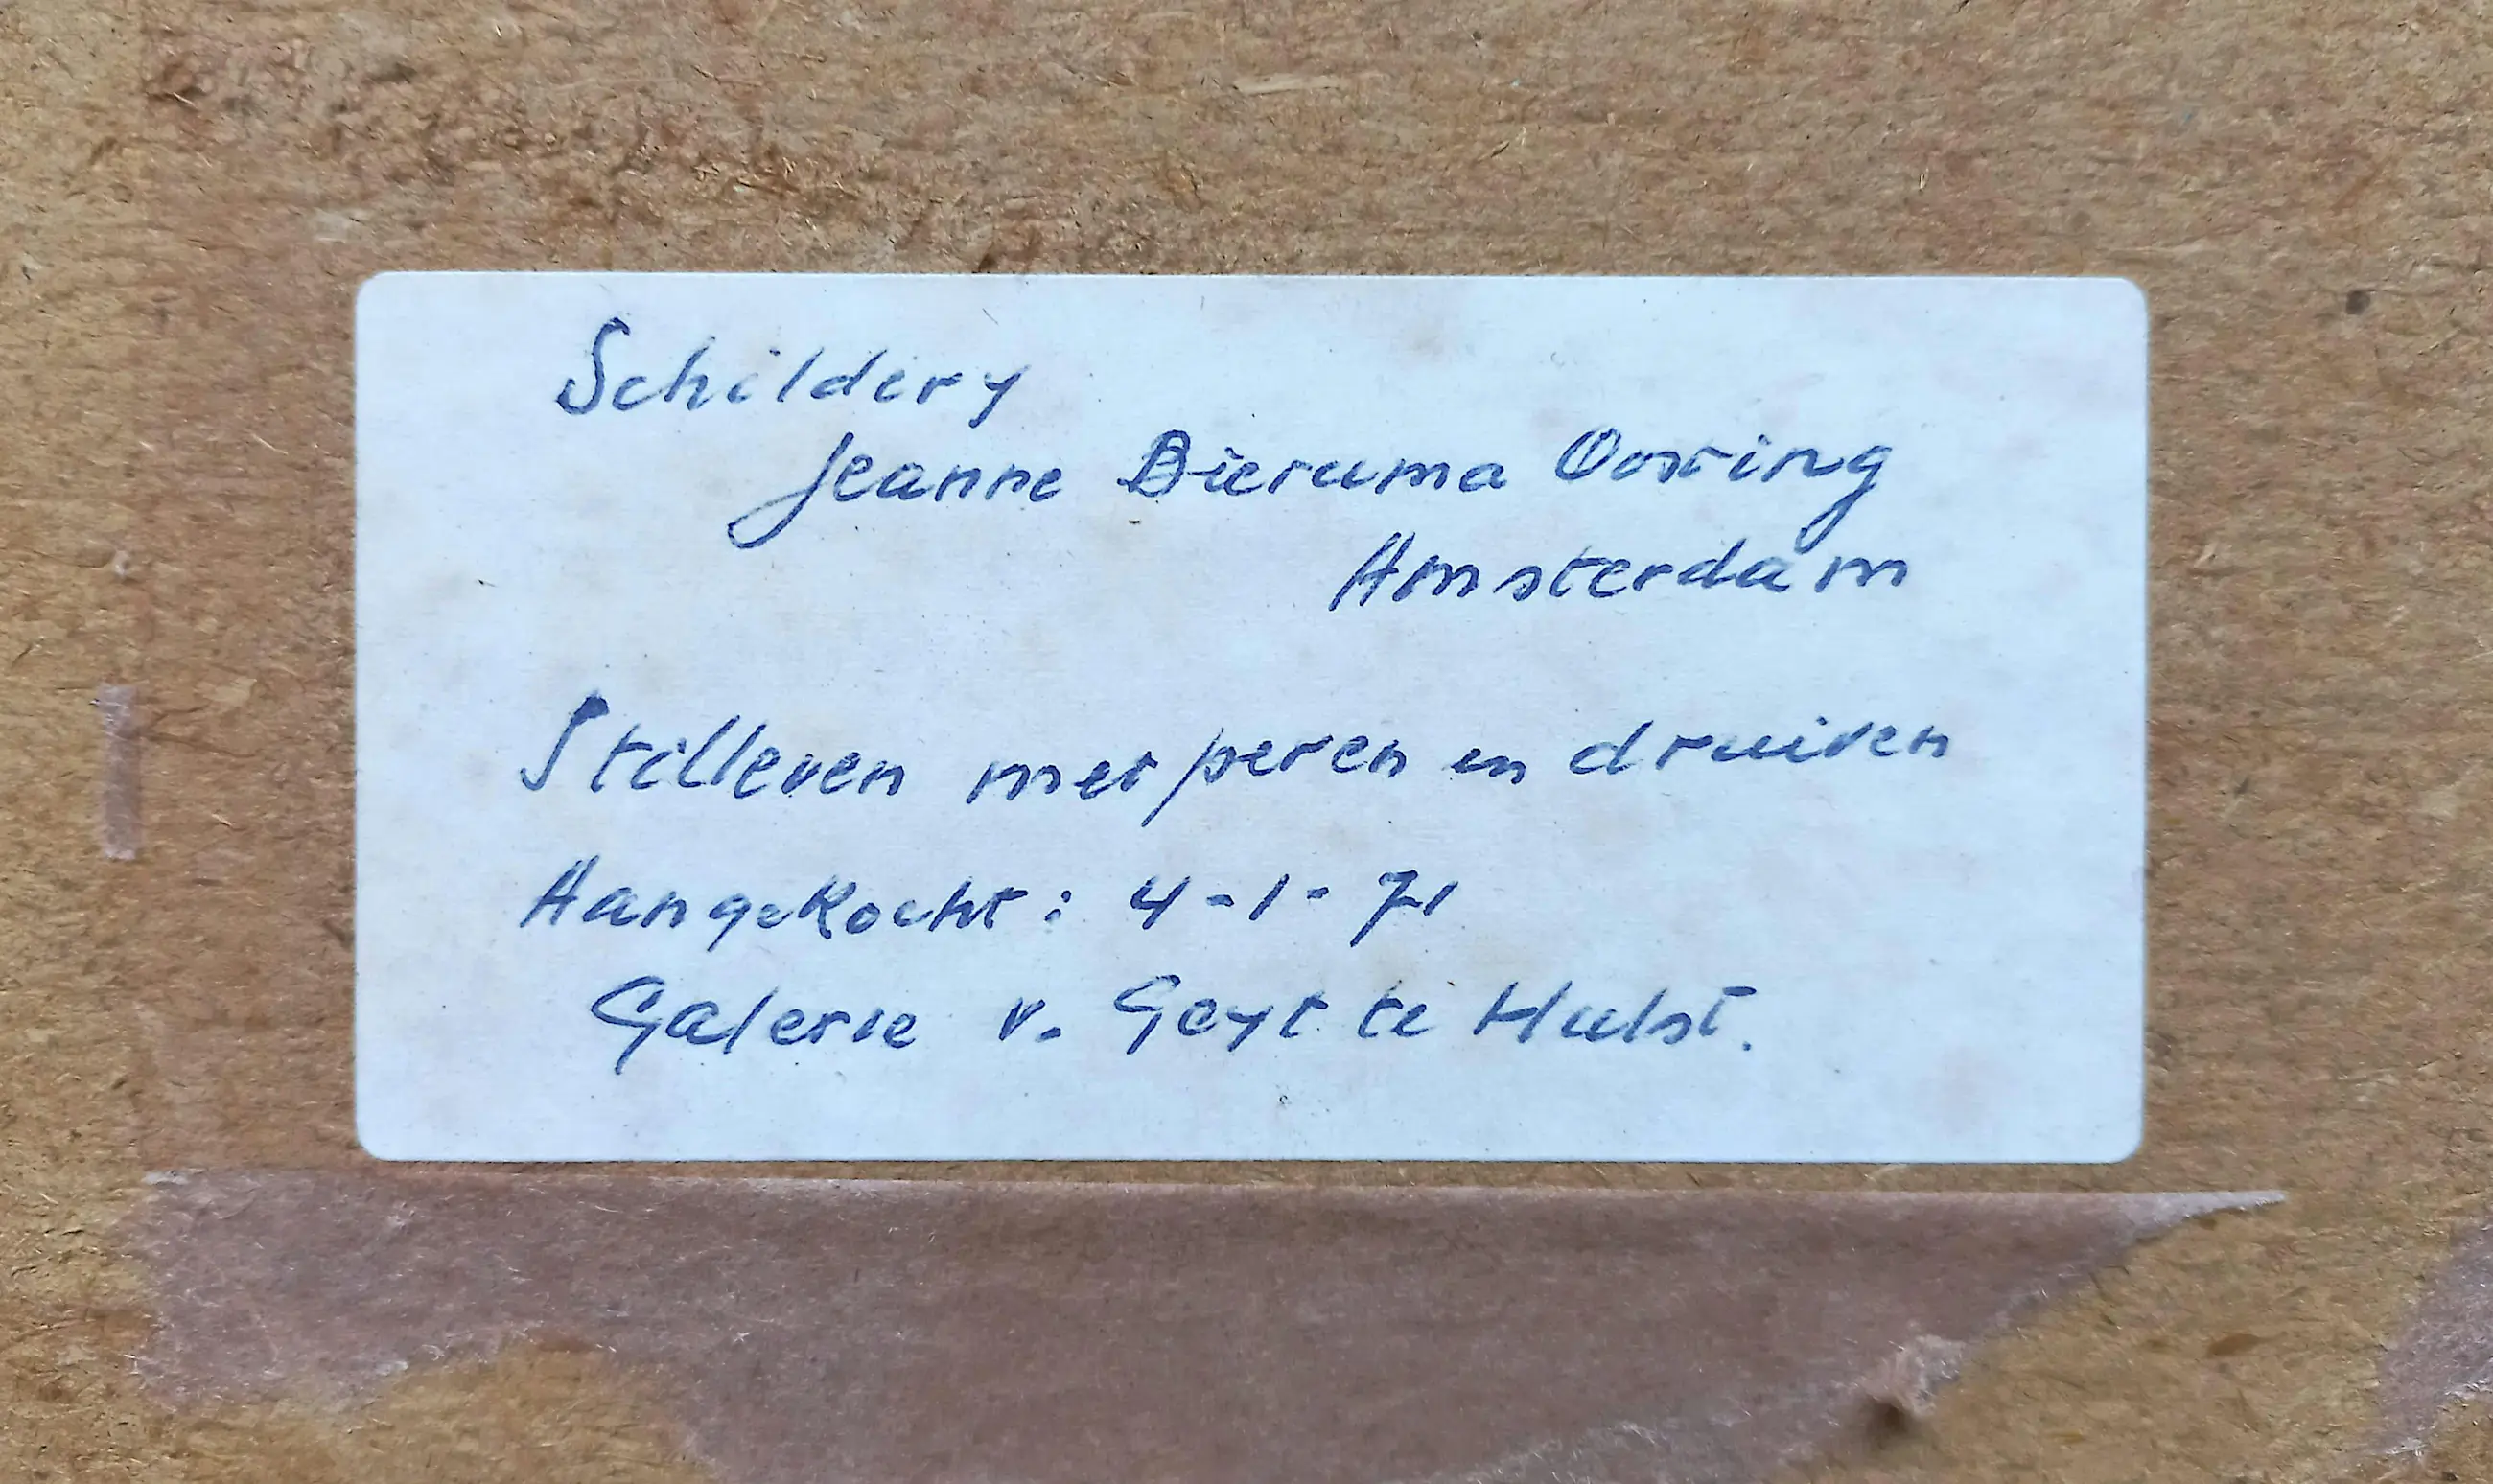 Schildery
Jeanne Bieruma Oosting
Amsterdam
Stilleven met peren en druiven
Aangekocht: 4-1-71
Galerie v. Geyt te Hulst.